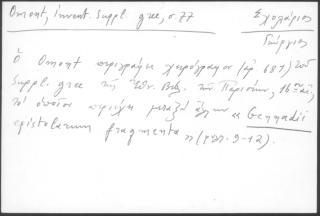 Omont, Invent. Suppl. grec, σ. 77
Σχολάριος
Γεώργιος
Ὁ Omont περιγράφει χειρόγραφον (ἀρ. 687) τοῦ
Suppl. grec τῆς Ἐθν. Βιβ. τῶν Παρισίων, 16ου αἰ.,
τὸ ὁποῖον περιέχει μεταξὺ ἄλλων « Gennadii
epistolarum fragmenta » (φφ. 9-12).